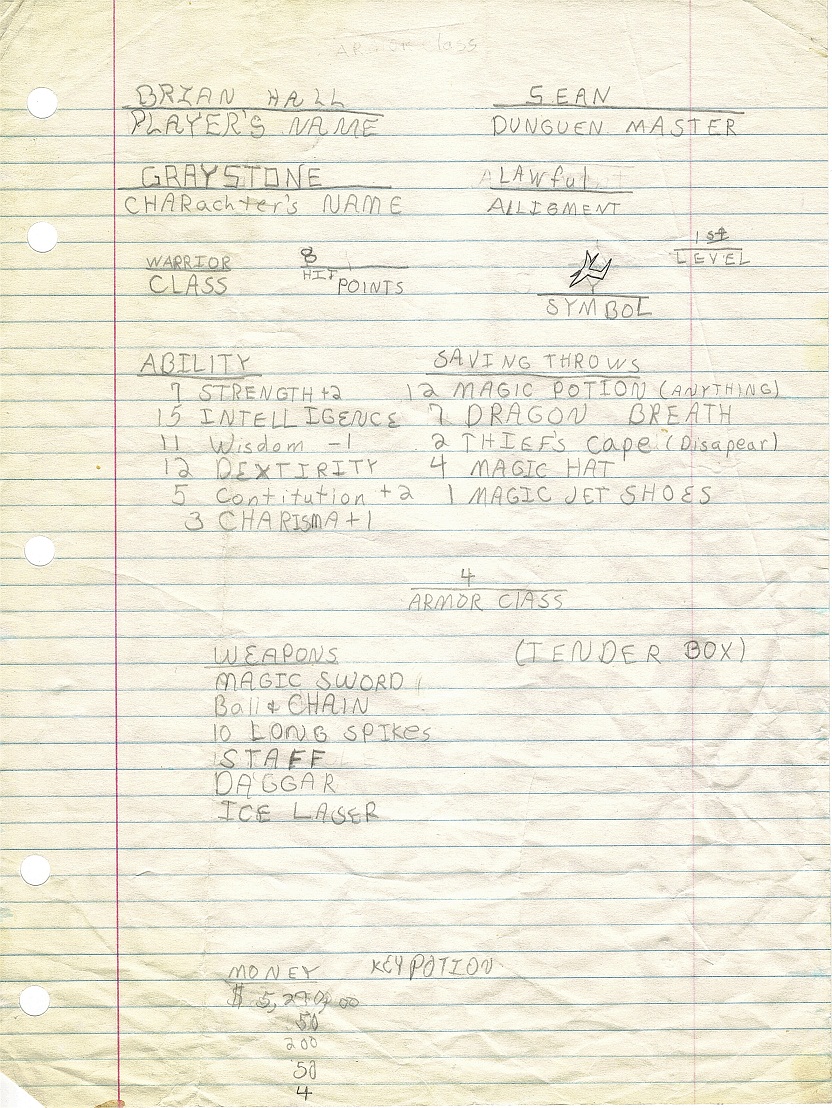 ARmor Class
BRIAN HALL
PLAYER'S NAME
SEAN
DUNGUEN MASTER
GRAYSTONE
CHARachter's NAME
LAWful
ALLIGMENT
WARRIOR
CLASS
8
HIT POINTS
SYMBOL
1st
LEVEL
ABILITY
7 STRENGTH +2
15 INTELLIGENCE
11 Wisdom -1
12 DEXTIRITY
5 Contitution +2
3 CHARISMA +1
SAVING THROWS
12 MAGIC POTION (ANYTHING)
7 DRAGON BREATH
2 THIEF'S cape (Disapear)
4 MAGIC HAT
1 MAGIC JET SHOES
4
ARMOR ClASS
WEAPONS
MAGIC SWORD
Ball & CHAIN
10 LONG SPIKes
STAFF
DAGGAR
ICE LASER
(TENDER BOX)
MONEY
50
200
50
4
KEY POTION